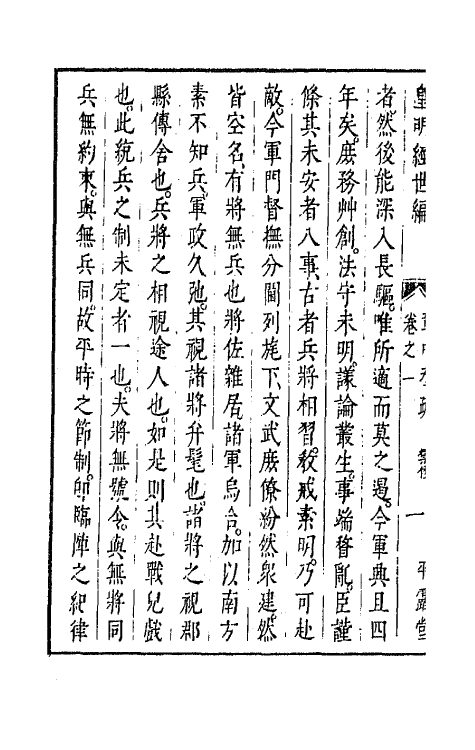 皇明經世編
卷之一
一
平露堂
者然後能深入長驅唯所適而莫之遏今軍典且四
年矣庶務艸創法守未明議論叢生事端瞀亂臣謹
條其未安者八事古者兵將相習教戒素明乃可赴
敵今軍門督撫分閫列旄下文武庶僚紛然衆建然
皆空名有將無兵也將佐雜居諸軍烏合加以南方
素不知兵軍政久弛其視諸將弁髦也諸將之視郡
縣傳舍也兵將之相視途人也如是則其赴戰兒戲
也此統兵之制未定者一也夫將無號令與無將同
兵無約束與無兵同故平時之節制卽臨陣之紀律